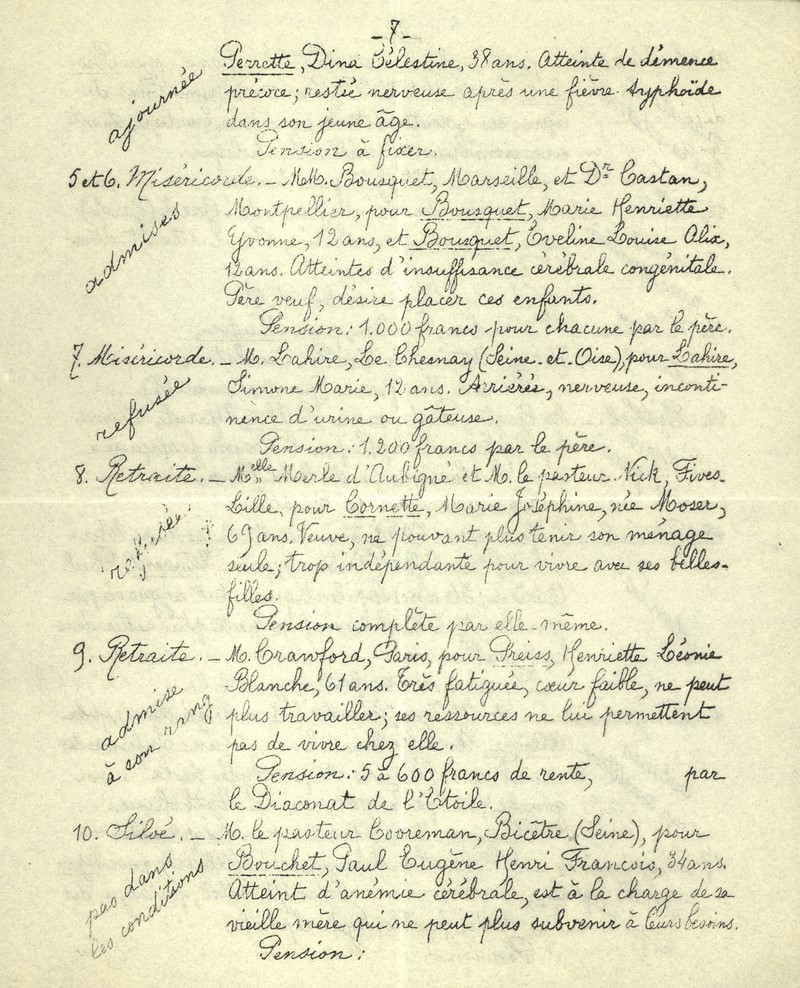 - 7 -
Perrette, Dina Célestine, 38 ans. Atteinte de démence
précoce; restée nerveuse après une fièvre typhoïde
dans son jeune âge.
Pension à fixer.
ajournée
5 et 6. Miséricorde. - M.M. Bousquet, Marseille, et Dr Castan,
Montpellier, pour Bousquet, Marie Henriette
Yvonne, 12 ans, et Bousquet, Eveline Louise Alix,
12 ans. Atteintes d'insuffisance cérébrale congénitale.
Père veuf, désire placer ces enfants.
Pension: 1.000 francs pour chacune par le père.
admises
7. Miséricorde. - M. Lahire, Le Chesnay (Seine-et-Oise), pour Lahire,
Simone Marie, 12 ans. Arriérée, nerveuse, inconti-
nence d'urine ou gâteuse.
Pension: 1.200 francs par le père.
refusée
8. Retraite. - Melle Merle d'Aubigné et M. le pasteur Nick, Fives-
Lille, pour Cornette, Marie Joséphine, née Moser,
69 ans. Veuve, ne pouvant plus tenir son ménage
seule; trop indépendante pour vivre avec ses belles-
filles.
Pension complète par elle-même.
refusée
9. Retraite. - M. Crawford, Paris, pour Preiss, Henriette Léonie
Blanche, 61 ans. Très fatiguée, cœur faible, ne peut
plus travailler; ses ressources ne lui permettent
pas de vivre chez elle.
Pension: 5 à 600 francs de rente, par
le Diaconat de l'Etoile.
admise
à son rang
10. Siloé. - M. le pasteur Cooreman, Bicêtre (Seine), pour
Bouchet, Paul Eugène Henri François, 34 ans.
Atteint d'anémie cérébrale, est à la charge de sa
vieille mère qui ne peut plus subvenir à leurs besoins.
Pension:
pas dans
les conditions